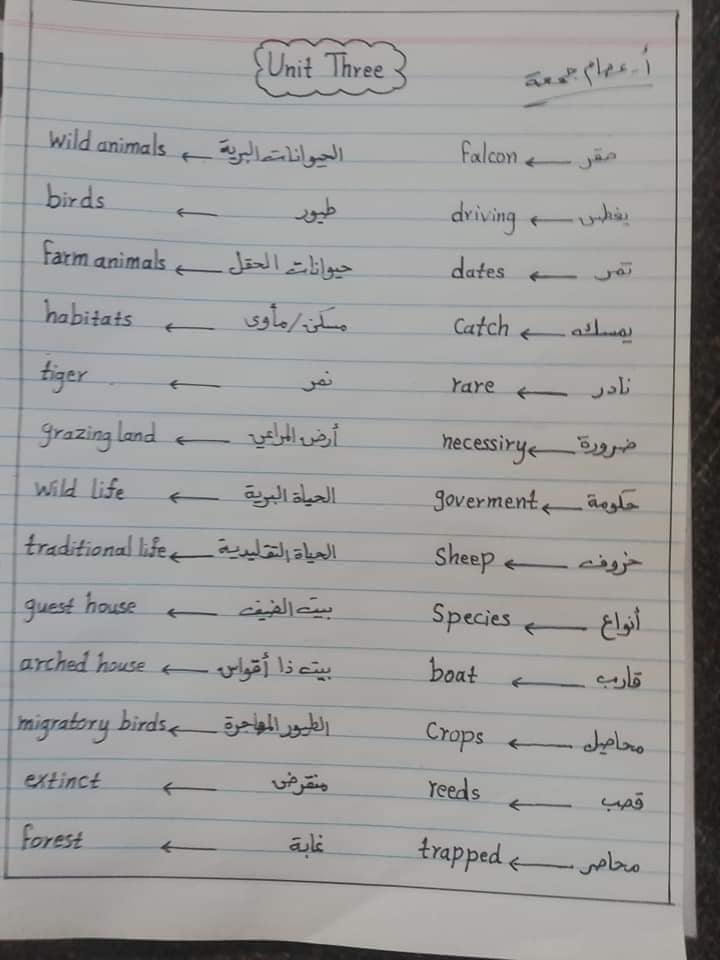 Unit Three
أ. عصام جمعة
wild animals ← الحيوانات البرية falcon ← صقر
birds ← طيور driving ← يغطس
farm animals ← حيوانات الحقل dates ← تمر
habitats ← مسكن/مأوى catch ← يمسك
tiger ← نمر rare ← نادر
grazing land ← أرض المراعي necessiry ← ضرورة
wild life ← الحياة البرية goverment ← حكومة
traditional life ← الحياة التقليدية sheep ← خروف
guest house ← بيت الضيف Species ← أنواع
arched house ← بيت ذا أقواس boat ← قارب
migratory birds ← الطيور المهاجرة Crops ← محاصيل
extinct ← منقرض reeds ← قصب
forest ← غابة trapped ← محاصر